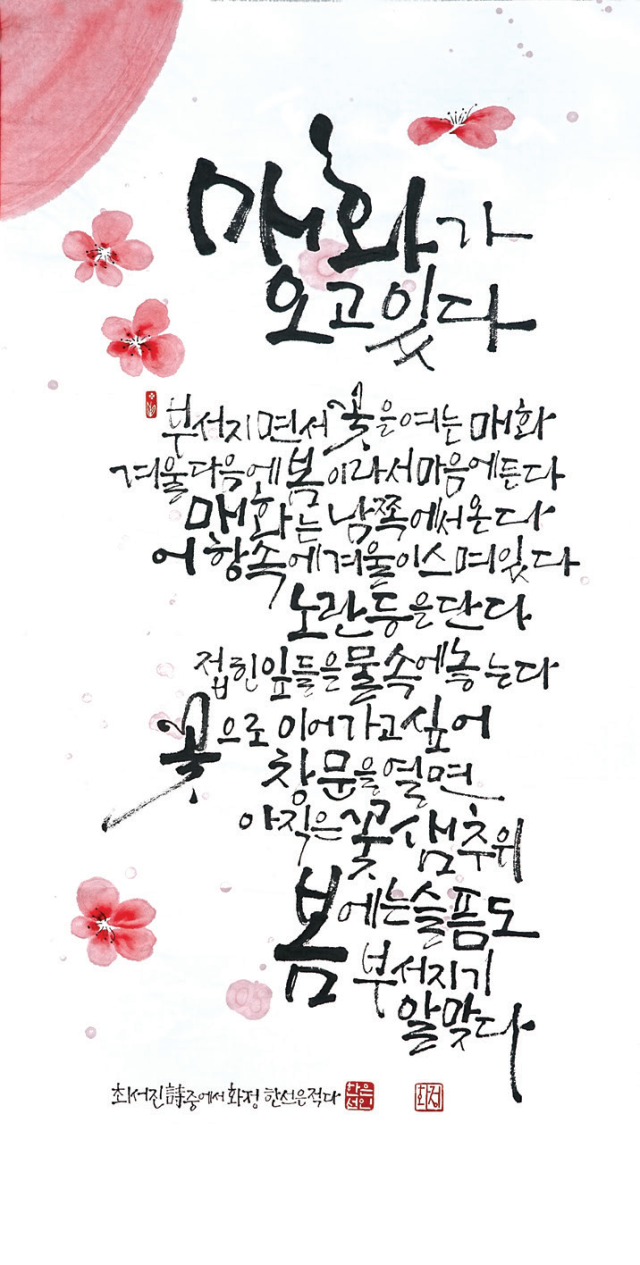 매화가
오고있다
부서지면서 꽃을 여는 매화
겨울 다음에 봄이라서 마음에 든다
매화는 남쪽에서 온다
어항 속에 겨울이 스며있다
노란 등을 단다
접힌 잎들을 물속에 놓는다
꽃으로 이어가고 싶어
창문을 열면
아직은 꽃샘추위
봄에는 슬픔도
부서지기
알맞다
최서진 詩 중에서 화정 한선은 적다